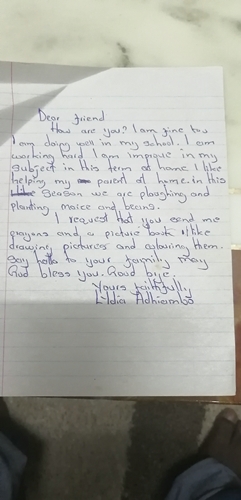 Dear friend
How are you? I am fine too
I am doing well in my school. I am
working hard I am improve in my
subject in this term at home I like
helping my parent at home. in this
season we are ploughing and
planting maize and beans.
I request that you send me
crayons and a picture book I like
drawing pictures and colouring them.
Say hello to your family may
God bless you. Good bye.
Yours faithfully
Lydia Adhiambo